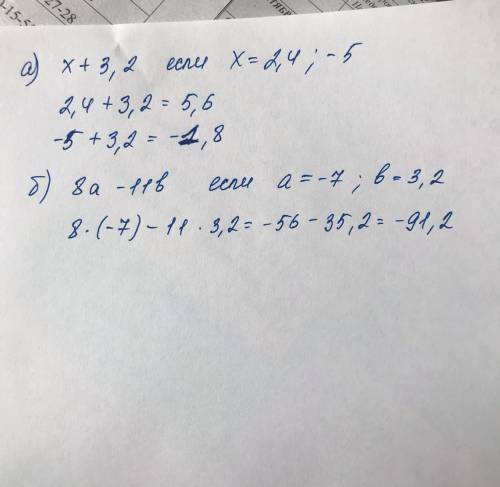 0-15-5
27-28
а) x + 3,2 если x = 2,4 ; -5
2,4 + 3,2 = 5,6
-5 + 3,2 = -1,8
б) 8a - 11b если a = -7 ; b = 3,2
8 · (-7) - 11 · 3,2 = -56 - 35,2 = -91,2